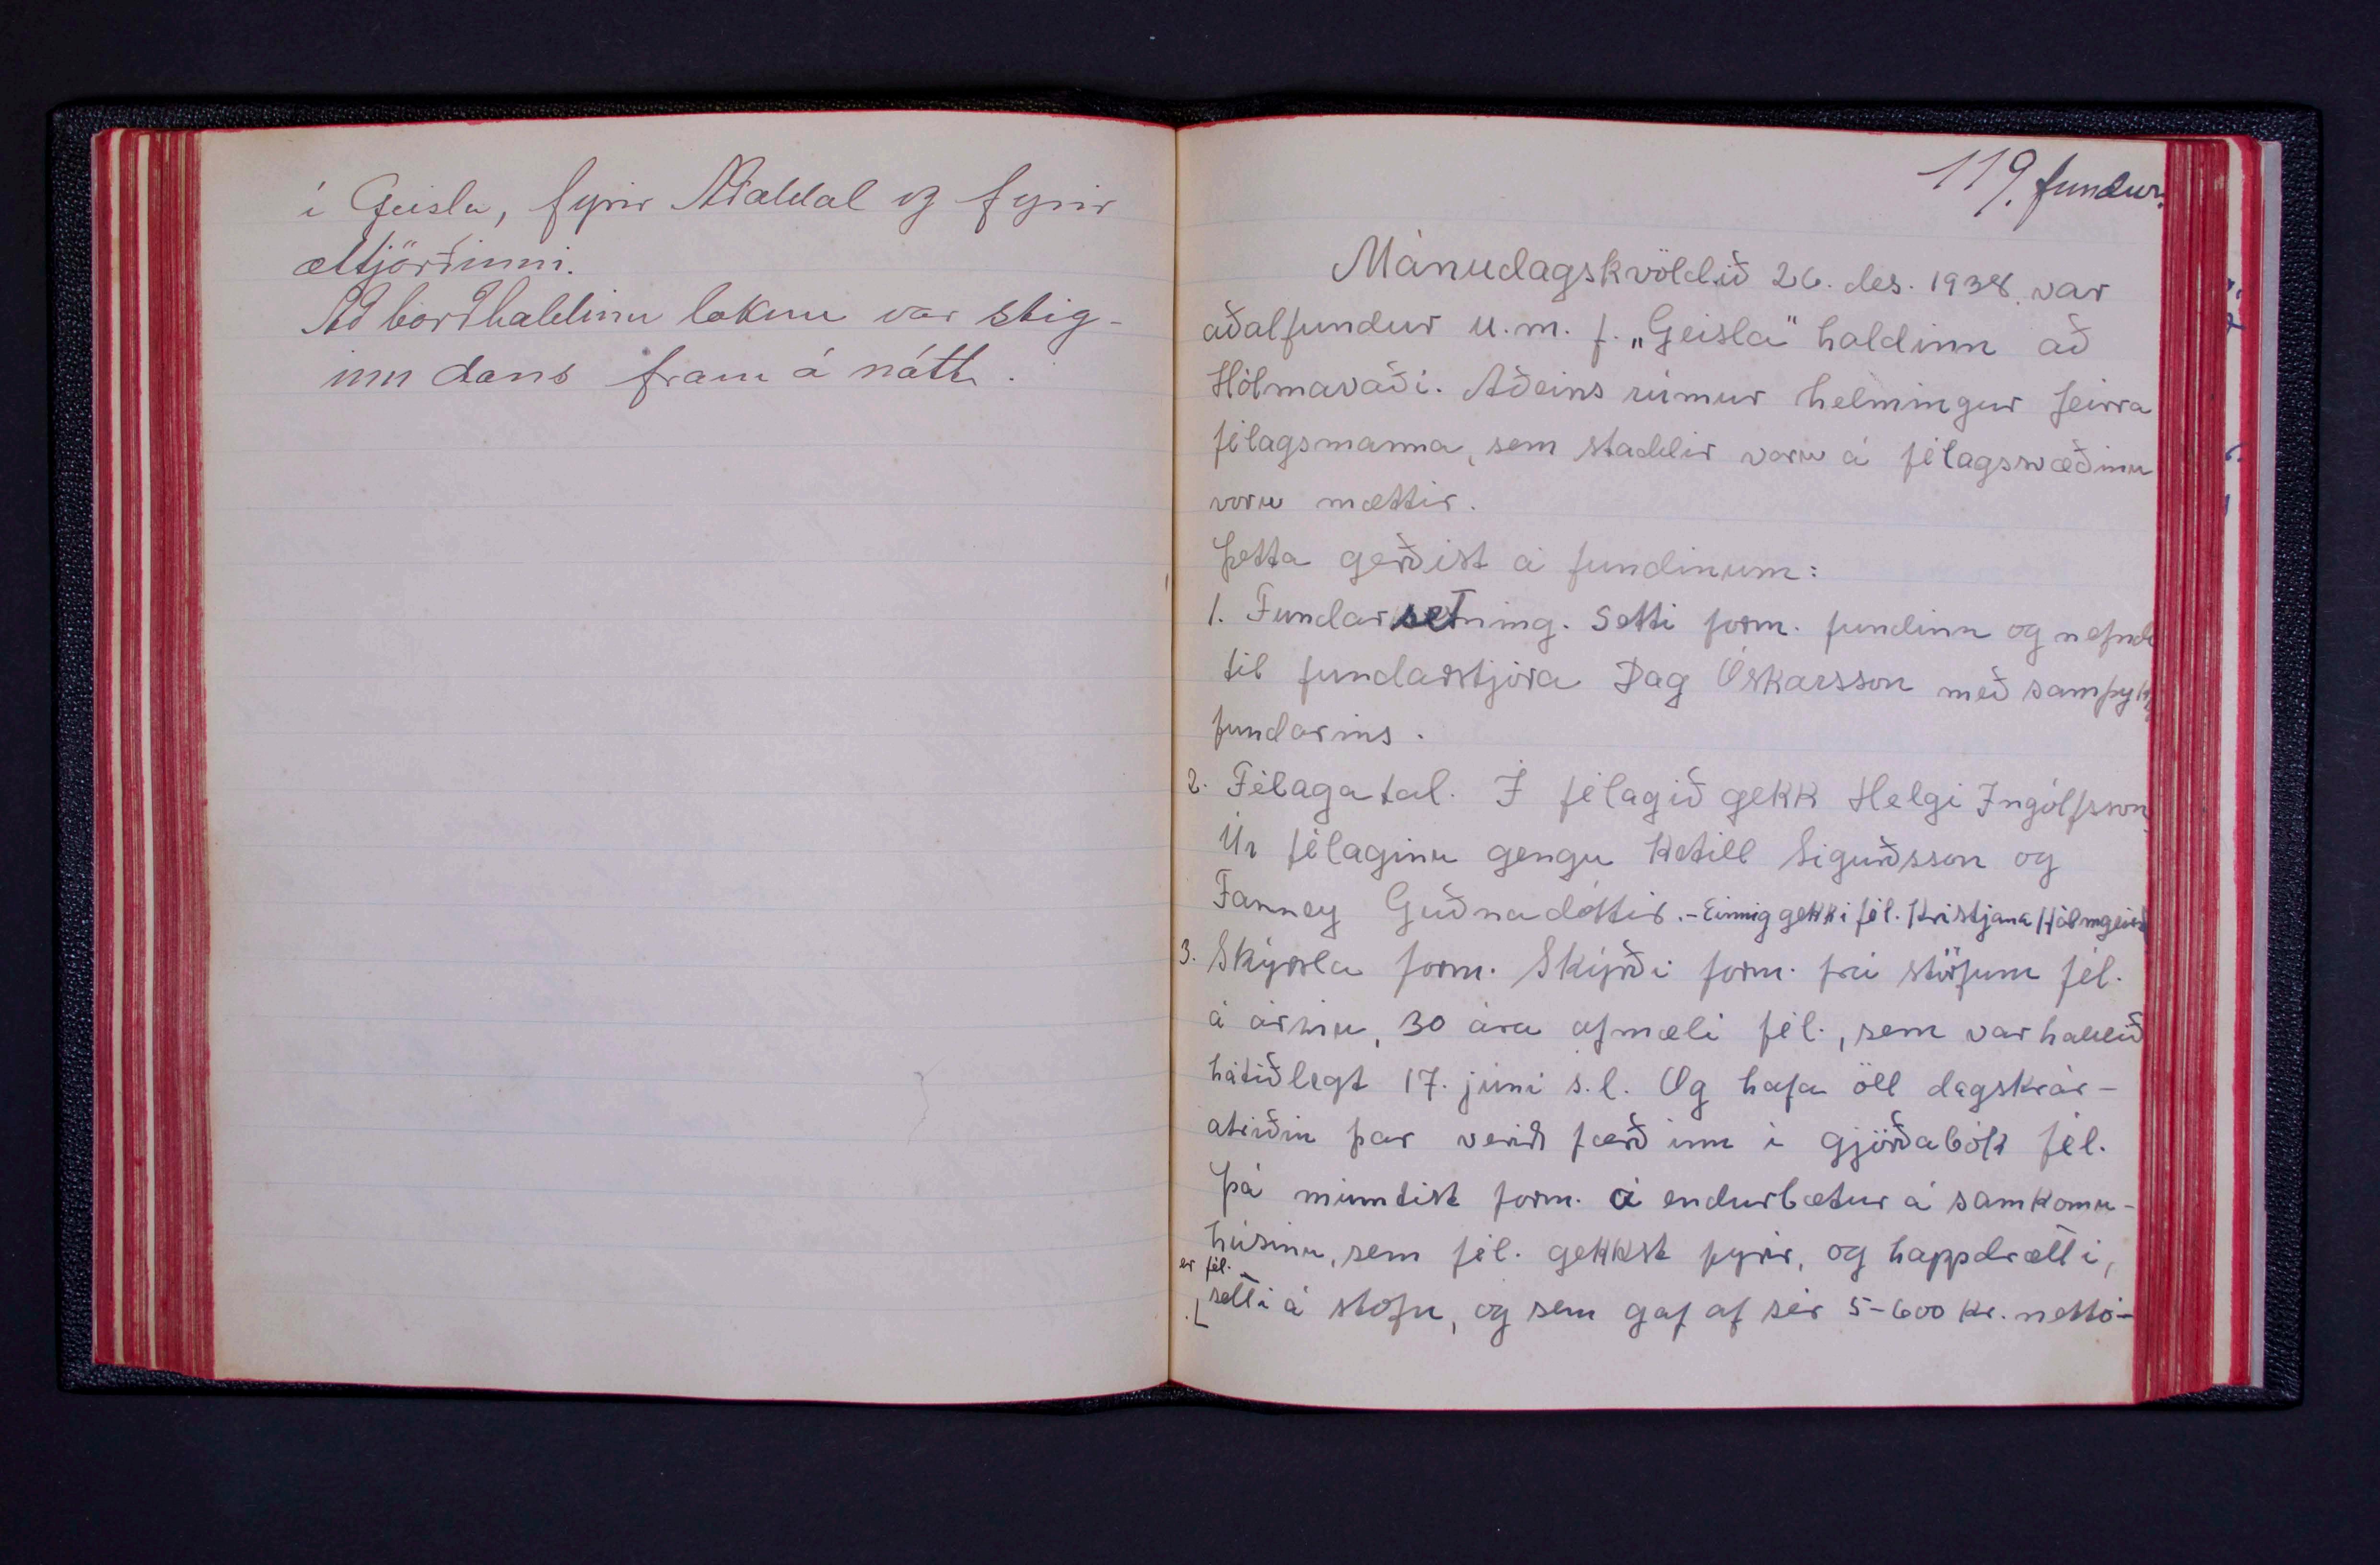 í Geisla, fyrir Aðaldal og fyrir
ættjörðinni.
Að borðhaldinu loknu var stig-
inn dans fram á nátt.
119. fundur.
Mánudagskvöldið 26. des. 1938. var
aðalfundur u.m.f. „Geisla" haldinn að
Hólmavaði. Aðeins rúmur helmingur þeirra
félagsmanna, sem staddir voru á félagssvæðinu
voru mættir.
Þetta gerðist á fundinum:
1. Fundarsetning. Setti form. fundinn og nefndi
til fundarstjóra Dag Óskarsson með samþykki
fundarins.
2. Félagatal. Í félagið gekk Helgi Ingólfsson.
Úr félaginu gengu Ketill Sigurðsson og
Fanney Guðnadóttir. - Einnig gekk í fél. Kristjana Hólmgeirsd
3. Skýrsla form. Skýrði form. frá störfum fél.
á árinu, 30 ára afmæli fél., sem var haldið
hátíðlegt 17. júní s.l. Og hafa öll dagskrár-
atriðin þar verið færð inn í gjörðabók fél.
Þá minntist form. á endurbætur á samkomu-
húsinu, sem fél. gekkst fyrir, og happdrætti,
er fél.
setti á stofn, og sem gaf af sér 5-600 kr. nettó-